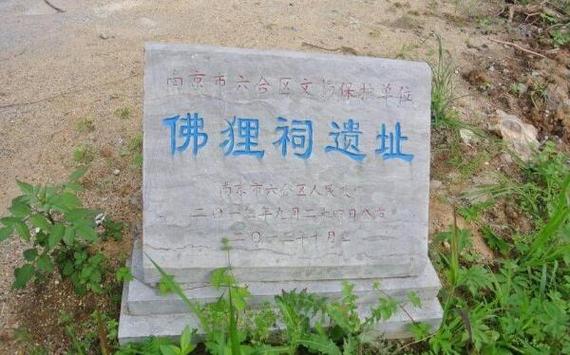 南京市六合区文物保护单位
佛狸祠遗址
南京市六合区人民政
二〇一二年九月二十四日公布
二〇一二十月立